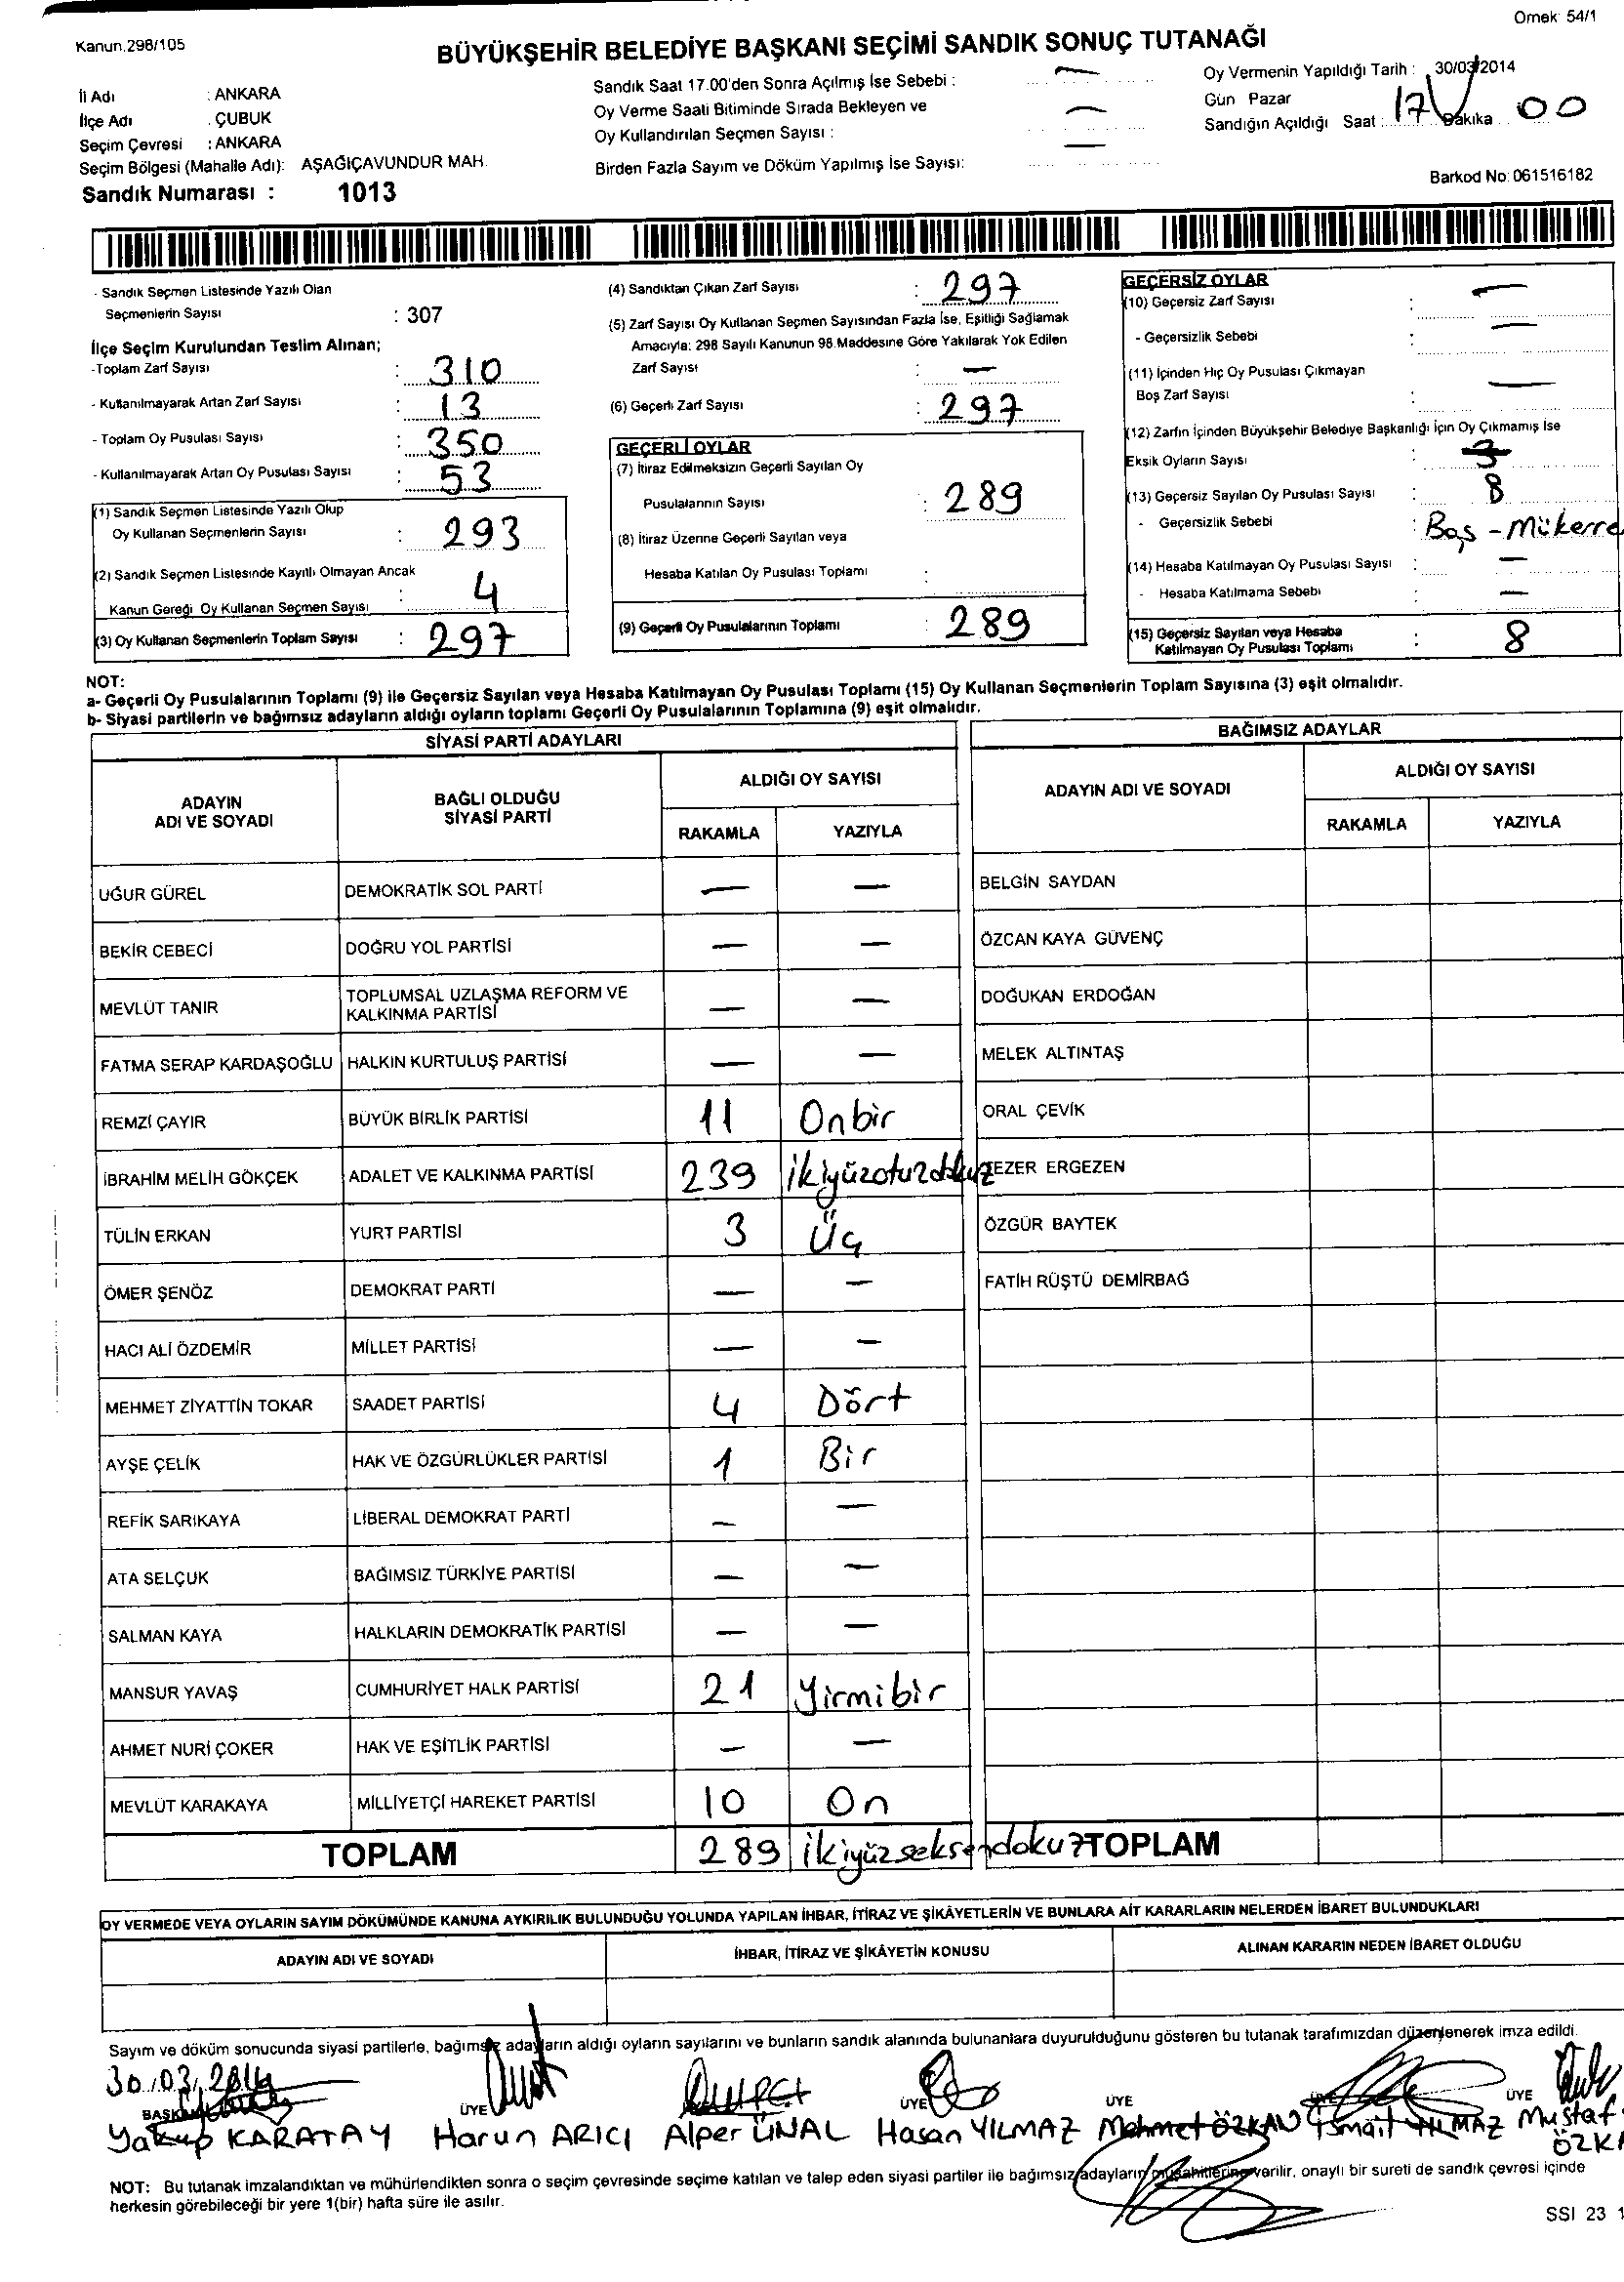 Kanun.298/105
Örnek: 54/1
BÜYÜKŞEHİR BELEDİYE BAŞKANI SEÇİMİ SANDIK SONUÇ TUTANAĞI
İl Adı : ANKARA
İlçe Adı : ÇUBUK
Seçim Çevresi : ANKARA
Seçim Bölgesi (Mahalle Adı): AŞAĞIÇAVUNDUR MAH.
Sandık Numarası : 1013
Sandık Saat 17.00'den Sonra Açılmış İse Sebebi : —
Oy Verme Saati Bitiminde Sırada Bekleyen ve
Oy Kullandırılan Seçmen Sayısı : —
Birden Fazla Sayım ve Döküm Yapılmış İse Sayısı: —
Oy Vermenin Yapıldığı Tarih : 30/03/2014
Gün Pazar
Sandığın Açıldığı Saat : 17 Dakika 00
Barkod No: 061516182
- Sandık Seçmen Listesinde Yazılı Olan
Seçmenlerin Sayısı : 307
İlçe Seçim Kurulundan Teslim Alınan;
-Toplam Zarf Sayısı : 310
- Kullanılmayarak Artan Zarf Sayısı : 13
- Toplam Oy Pusulası Sayısı : 350
- Kullanılmayarak Artan Oy Pusulası Sayısı : 53
(1) Sandık Seçmen Listesinde Yazılı Olup
Oy Kullanan Seçmenlerin Sayısı : 293
(2) Sandık Seçmen Listesinde Kayıtlı Olmayan Ancak
Kanun Gereği Oy Kullanan Seçmen Sayısı : 4
(3) Oy Kullanan Seçmenlerin Toplam Sayısı : 297
(4) Sandıktan Çıkan Zarf Sayısı : 297
(5) Zarf Sayısı Oy Kullanan Seçmen Sayısından Fazla İse, Eşitliği Sağlamak
Amacıyla: 298 Sayılı Kanunun 98.Maddesine Göre Yakılarak Yok Edilen
Zarf Sayısı : —
(6) Geçerli Zarf Sayısı : 297
GEÇERLİ OYLAR
(7) İtiraz Edilmeksizin Geçerli Sayılan Oy
Pusulalarının Sayısı : 289
(8) İtiraz Üzerine Geçerli Sayılan veya
Hesaba Katılan Oy Pusulası Toplamı :
(9) Geçerli Oy Pusulalarının Toplamı : 289
GEÇERSİZ OYLAR
(10) Geçersiz Zarf Sayısı : —
- Geçersizlik Sebebi : —
(11) İçinden Hiç Oy Pusulası Çıkmayan
Boş Zarf Sayısı : —
(12) Zarfın İçinden Büyükşehir Belediye Başkanlığı İçin Oy Çıkmamış İse
Eksik Oyların Sayısı : 3
(13) Geçersiz Sayılan Oy Pusulası Sayısı : 8
- Geçersizlik Sebebi : Boş - Mükerre
(14) Hesaba Katılmayan Oy Pusulası Sayısı : —
- Hesaba Katılmama Sebebi : —
(15) Geçersiz Sayılan veya Hesaba
Katılmayan Oy Pusulası Toplamı : 8
NOT:
a- Geçerli Oy Pusulalarının Toplamı (9) ile Geçersiz Sayılan veya Hesaba Katılmayan Oy Pusulası Toplamı (15) Oy Kullanan Seçmenlerin Toplam Sayısına (3) eşit olmalıdır.
b- Siyasi partilerin ve bağımsız adayların aldığı oyların toplamı Geçerli Oy Pusulalarının Toplamına (9) eşit olmalıdır.
SİYASİ PARTİ ADAYLARI
ADAYIN ADI VE SOYADI BAĞLI OLDUĞU SİYASİ PARTİ ALDIĞI OY SAYISI
RAKAMLA YAZIYLA
UĞUR GÜREL DEMOKRATİK SOL PARTİ — —
BEKİR CEBECİ DOĞRU YOL PARTİSİ — —
MEVLÜT TANIR TOPLUMSAL UZLAŞMA REFORM VE KALKINMA PARTİSİ — —
FATMA SERAP KARDAŞOĞLU HALKIN KURTULUŞ PARTİSİ — —
REMZİ ÇAYIR BÜYÜK BİRLİK PARTİSİ 11 Onbir
İBRAHİM MELİH GÖKÇEK ADALET VE KALKINMA PARTİSİ 239 ikiyüzotuzdokuz
TÜLİN ERKAN YURT PARTİSİ 3 Üç
ÖMER ŞENÖZ DEMOKRAT PARTİ — —
HACI ALİ ÖZDEMİR MİLLET PARTİSİ — —
MEHMET ZİYATTİN TOKAR SAADET PARTİSİ 4 Dört
AYŞE ÇELİK HAK VE ÖZGÜRLÜKLER PARTİSİ 1 Bir
REFİK SARIKAYA LİBERAL DEMOKRAT PARTİ — —
ATA SELÇUK BAĞIMSIZ TÜRKİYE PARTİSİ — —
SALMAN KAYA HALKLARIN DEMOKRATİK PARTİSİ — —
MANSUR YAVAŞ CUMHURİYET HALK PARTİSİ 21 Yirmibir
AHMET NURİ ÇOKER HAK VE EŞİTLİK PARTİSİ — —
MEVLÜT KARAKAYA MİLLİYETÇİ HAREKET PARTİSİ 10 On
TOPLAM 289 ikiyüzseksendokuz
BAĞIMSIZ ADAYLAR
ADAYIN ADI VE SOYADI ALDIĞI OY SAYISI
RAKAMLA YAZIYLA
BELGİN SAYDAN
ÖZCAN KAYA GÜVENÇ
DOĞUKAN ERDOĞAN
MELEK ALTINTAŞ
ORAL ÇEVİK
EZER ERGEZEN
ÖZGÜR BAYTEK
FATİH RÜŞTÜ DEMİRBAĞ
TOPLAM
OY VERMEDE VEYA OYLARIN SAYIM DÖKÜMÜNDE KANUNA AYKIRILIK BULUNDUĞU YOLUNDA YAPILAN İHBAR, İTİRAZ VE ŞİKÂYETLERİN VE BUNLARA AİT KARARLARIN NELERDEN İBARET BULUNDUKLARI
ADAYIN ADI VE SOYADI İHBAR, İTİRAZ VE ŞİKÂYETİN KONUSU ALINAN KARARIN NEDEN İBARET OLDUĞU
Sayım ve döküm sonucunda siyasi partilerle, bağımsız adayların aldığı oyların sayılarını ve bunların sandık alanında bulunanlara duyurulduğunu gösteren bu tutanak tarafımızdan düzenlenerek imza edildi.
30.03.2014
BAŞKAN ÜYE ÜYE ÜYE ÜYE
Yakup KARATAY Harun ARICI Alper ÜNAL Hasan YILMAZ Mehmet ÖZKAN İsmail YILMAZ Mustaf
ÖZKA
NOT: Bu tutanak imzalandıktan ve mühürlendikten sonra o seçim çevresinde seçime katılan ve talep eden siyasi partiler ile bağımsız adayların müşahitlerine verilir, onaylı bir sureti de sandık çevresi içinde
herkesin görebileceği bir yere 1(bir) hafta süre ile asılır.
SSI 23 1